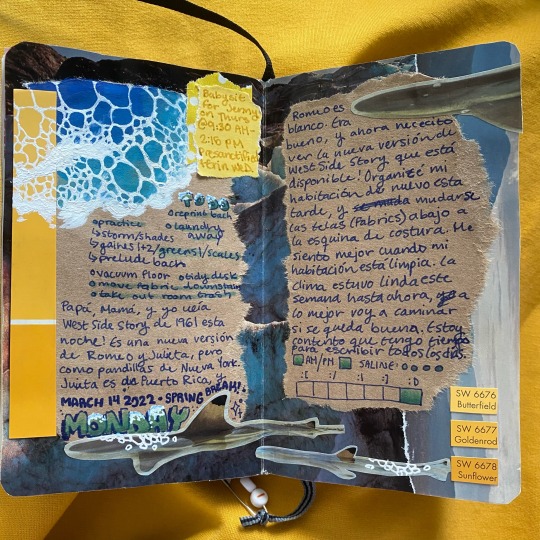 Babysit
for Jenny
on Thurs
@9:30 AM-
2:15 PM
TO DO
○reprint bach
○practice ○laundry
↳storm/shades away
↳gaines 1+2/greensl/scales
↳prelude bach
○vacuum floor ○tidy desk
○move fabric downstairs
○take out room trash
Papá, Mamá, y yo veía
West Side Story de 1961 esta
noche! Es una nueva versión
de Romeo y Jujeta, pero
como pandillas de Nueva York.
Jujeta es de Puerto Rica, y
MARCH 14 2022 • SPRING BREAK!
MONDAY
Romeo es
blanco. Era
bueno, y ahora nececito
ver la nueva versión de
West Side Story que está
disponible! Organizé mi
habitación de nuevo esta
tarde, y mudarse
las telas (fabrics) abajo a
la esquina de costura. Me
siento mejor cuando mi
habitación está limpia. La
clima estuvo linda este
semana hasta ahora, a
lo mejor voy a caminar
si se queda buena. Estoy
contento que tengo tiempo
para escribir todos los días.
AM/PM SALINE:
:( :| :) :D
SW 6676
Butterfield
SW 6677
Goldenrod
SW 6678
Sunflower